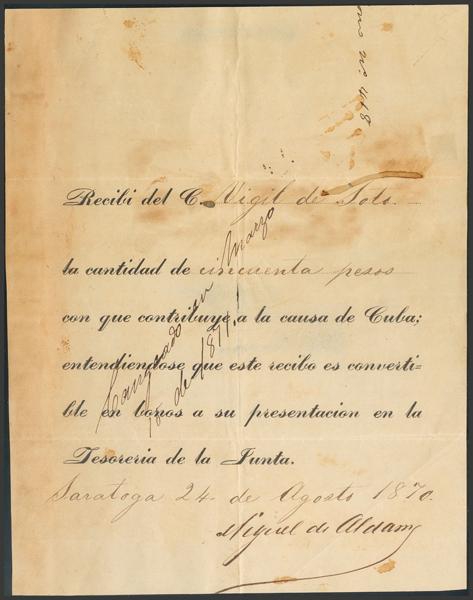 Recibi del C. Vigil de Soto.
la cantidad de cincuenta pesos
con que contribuye a la causa de Cuba;
entendiendose que este recibo es converti=
ble en bonos a su presentacion en la
Tesoreria de la Junta.
Saratoga 24 de Agosto 1870.
Miguel de Aldama
en Marzo
de 1871.